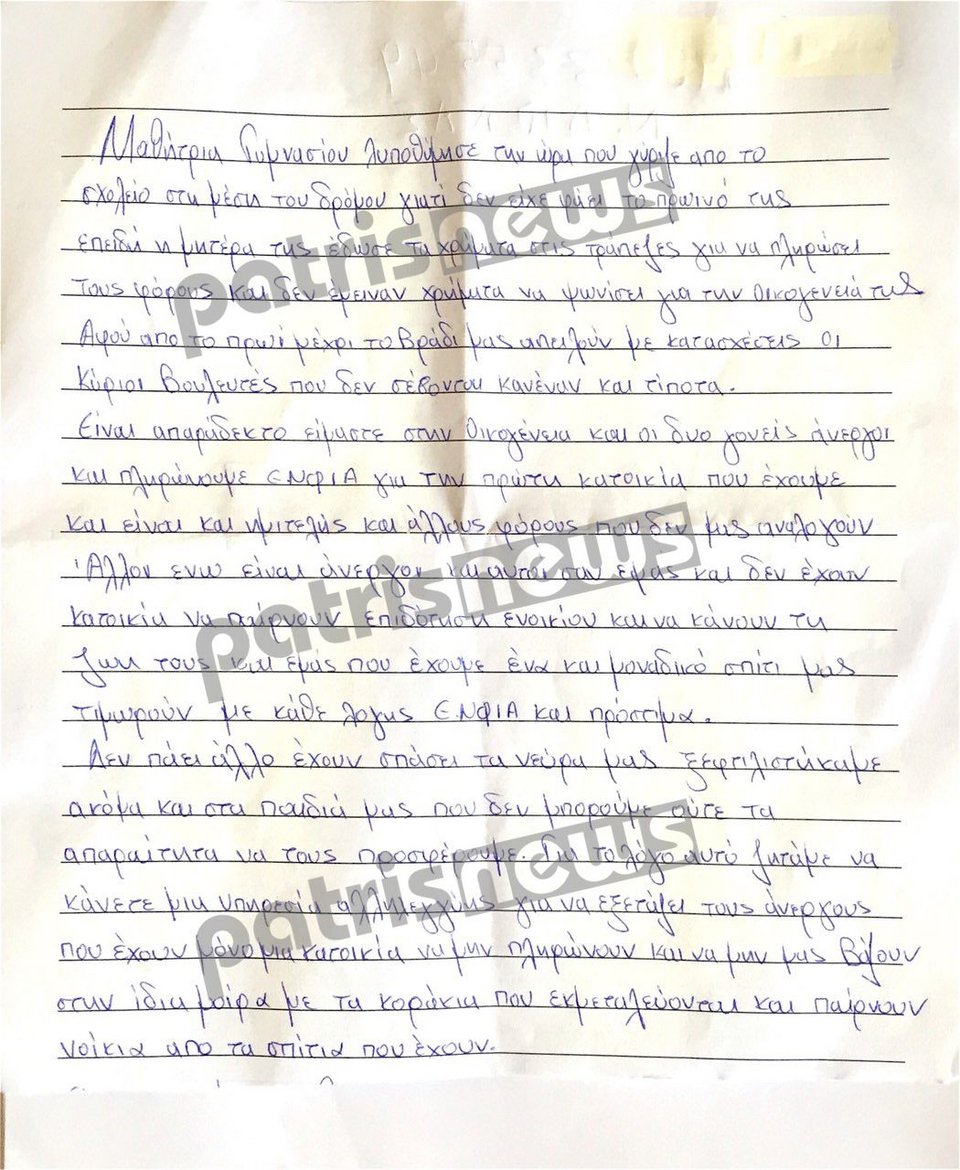 Μαθήτρια Γυμνασίου λυποθήμησε την ώρα που γύριζε απο το
σχολείο στη μέση του δρόμου γιατί δεν είχε φάει το πρωινό της
επειδή η μητέρα της έδωσε τα χρήματα στις τράπεζες για να πληρώσει
τους φόρους και δεν έμειναν χρήματα να ψωνίσει για την οικογενειά της
Αφού απο το πρωί μέχρι το βράδι μας απειλούν με κατασχέσεις οι
Κύριοι Βουλευτές που δεν σέβονται κανέναν και τίποτα.
Είναι απαράδεκτο είμαστε στην Οικογένεια και οι δυο γονείς άνεργοι
και πληρώνουμε ΕΝΦΙΑ για την πρώτη κατοικία που έχουμε
και είναι και ημιτελής και άλλους φόρους που δεν μας αναλογούν
Άλλοι ενω είναι άνεργοι και αυτοί σαν εμάς και δεν έχουν
κατοικία να παίρνουν επιδότηση ενοικίου και να κάνουν τη
ζωη τους και εμάς που έχουμε ένα και μοναδικό σπίτι μας
τιμωρούν με κάθε λογης ΕΝΦΙΑ και πρόστιμα.
Δεν πάει άλλο έχουν σπάσει τα νεύρα μας ξεφτιλιστήκαμε
ακόμα και στα παιδιά μας που δεν μπορούμε ούτε τα
απαραίτητα να τους προσφέρουμε. Για το λόγο αυτό ζητάμε να
κάνετε μια υπηρεσία αλληλεγγύης για να εξετάζει τους άνεργους
που έχουν μόνο μια κατοικία να μην πληρώνουν και να μην μας βάζουν
στην ίδια μοίρα με τα κοράκια που εκμεταλεύονται και παίρνουν
νοίκια απο τα σπίτια που έχουν.
patrisnews
patrisnews
patrisnews